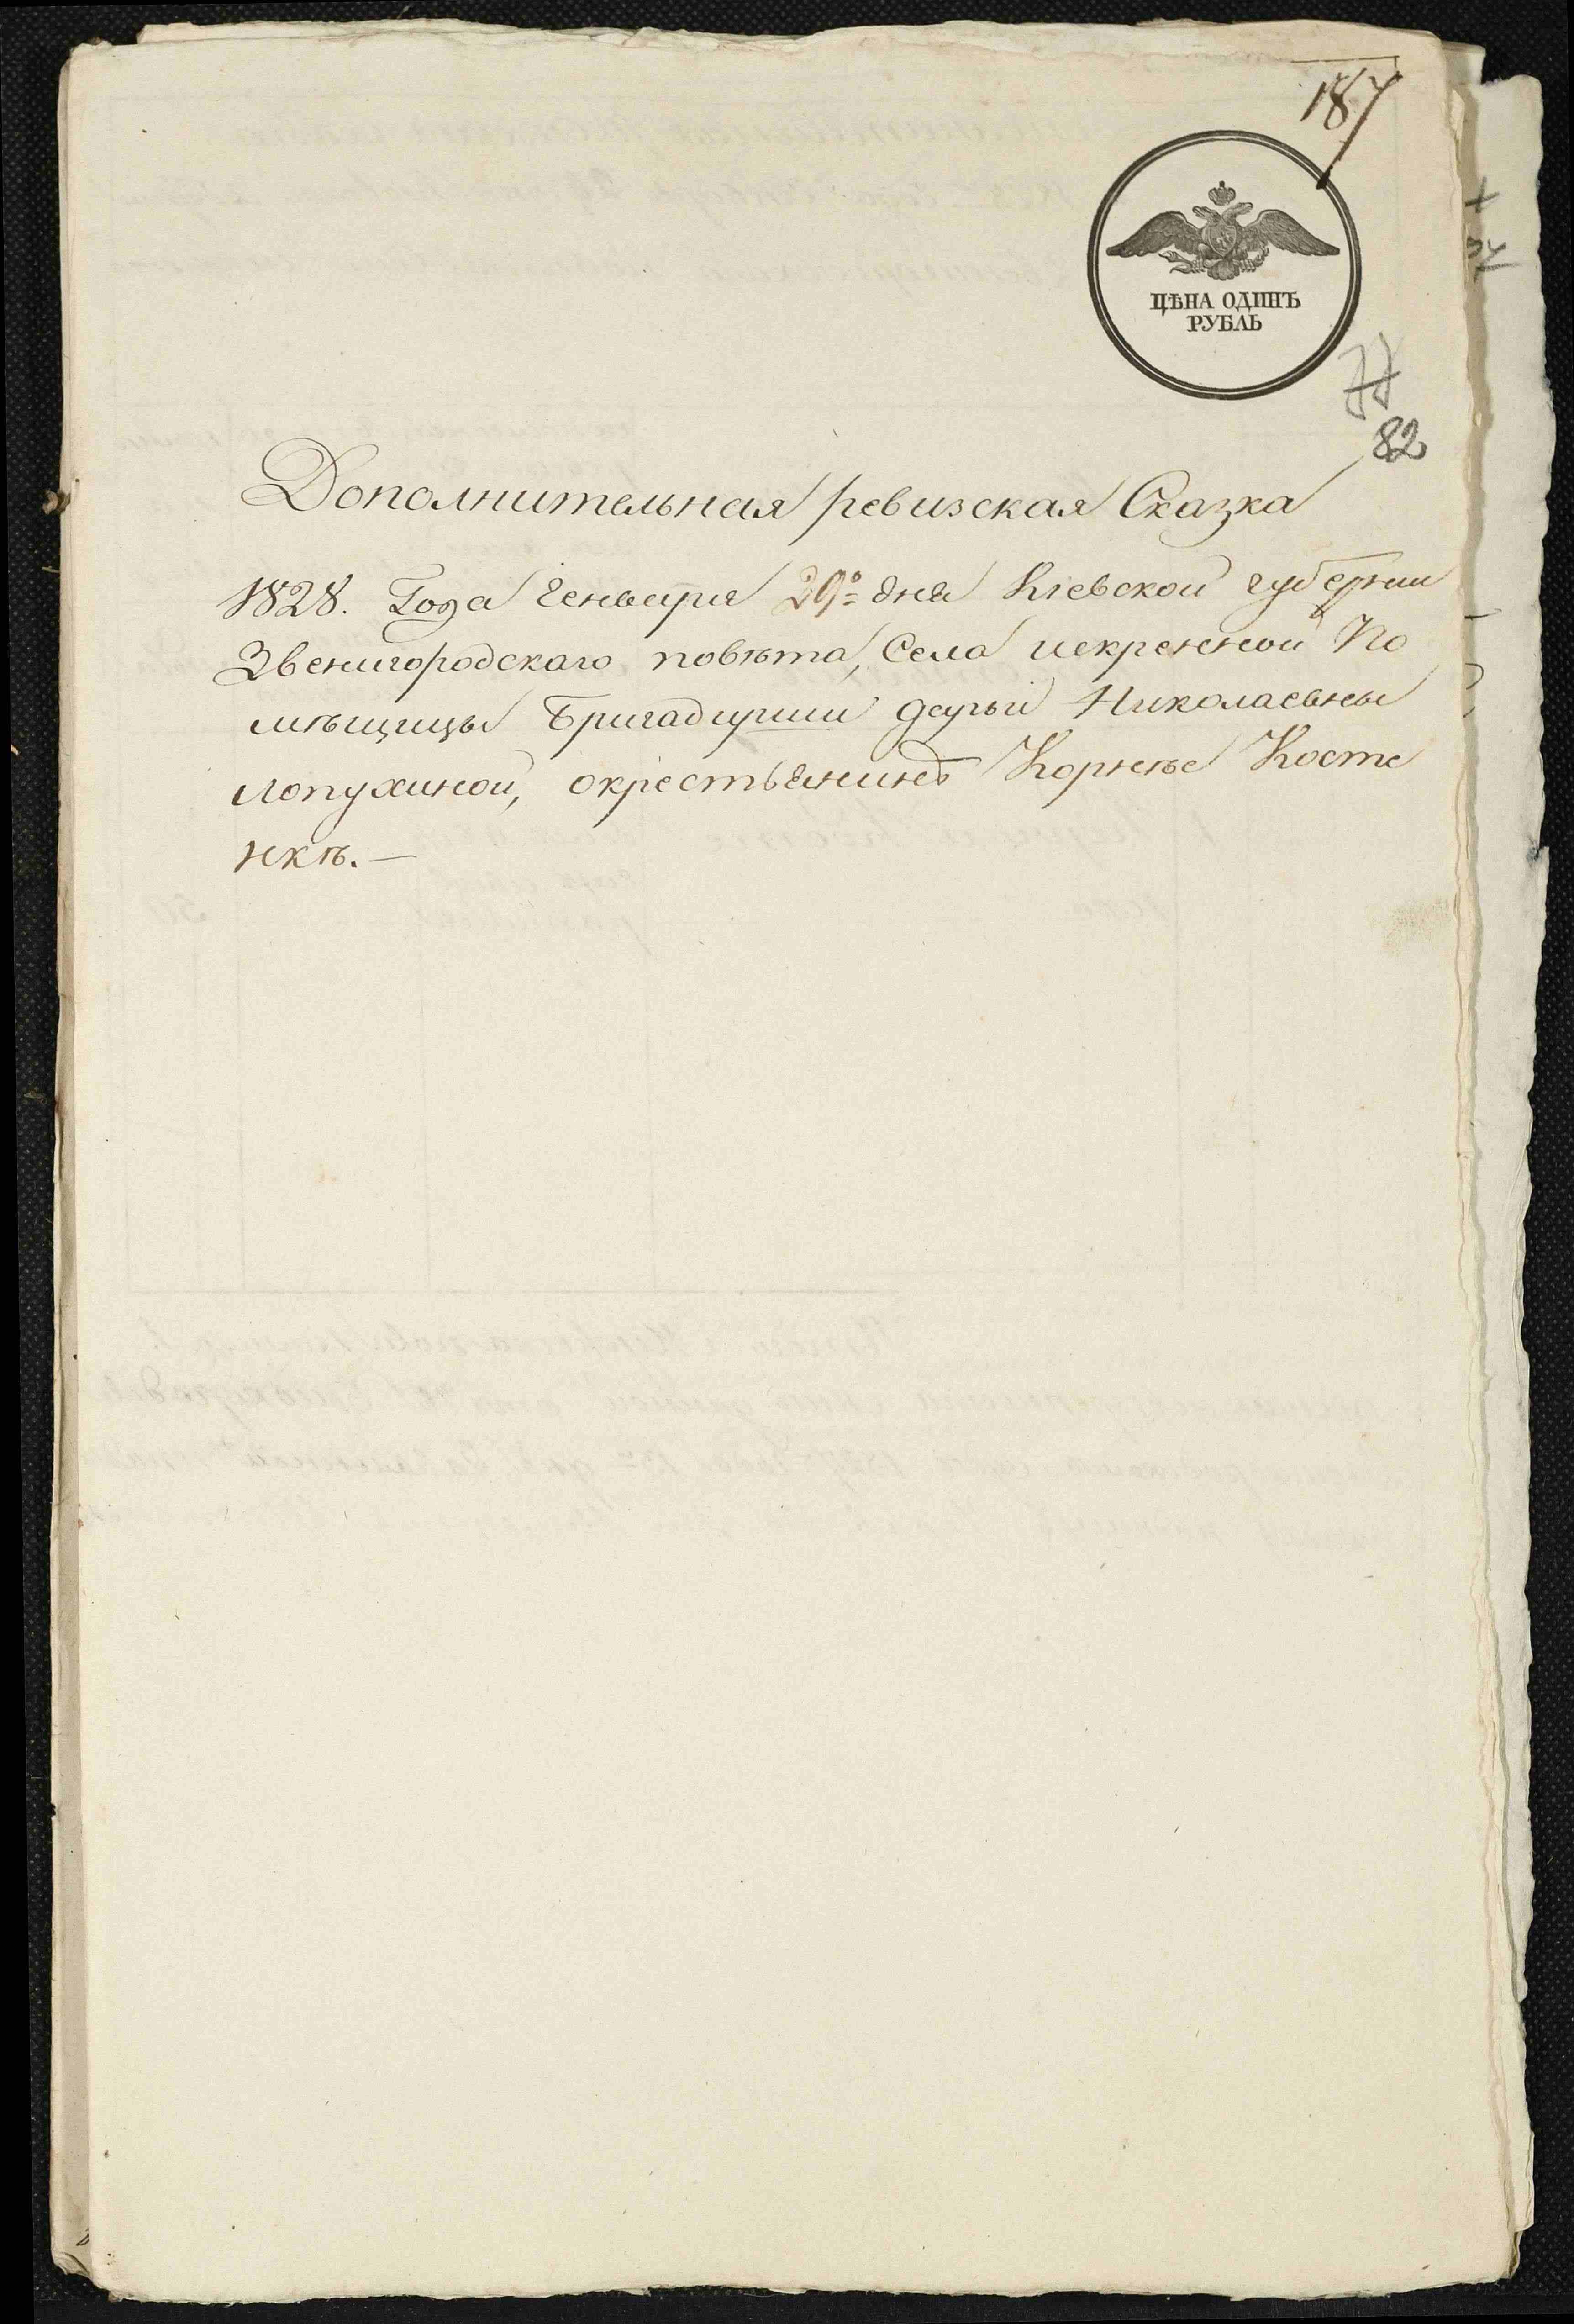 187
ЦѢНА ОДИНЪ
РУБЛЬ
77
82
Дополнительная ревизская Сказка
1828. Года Генваря 29º дня Кіевской губернии
Звенигородскаго повѣта, Села искренной По
мѣщицы Бригадирши дарьи Николаевны
лопухиной, окрестьянинѣ Корнѣе Косте
нкѣ.—